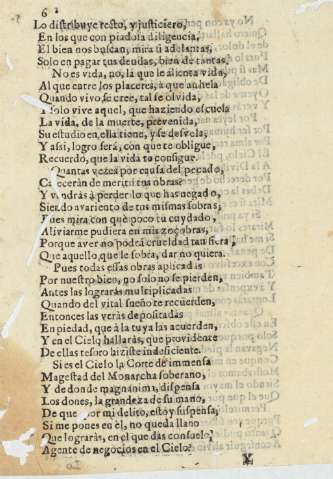 6
Lo distribuye recto, y justiciero,
En los que con piadosa diligencia,
El bien nos buscan; mira si adelantas,
Solo en pagar tus deudas, bien de tantas.
No es vida, no, la que le alienta vida,
Al que entre los placeres, à que anhela
Quando vivo se cree, tal se olvida,
Y solo vive aquel, que haziendo escuela
La vida, de la muerte, prevenida,
Su estudio en ella tiene, y se desvela;
Y assi, logro serà, con que te obligue,
Recuerdo, que la vida te consigue.
Quantas vezes por causa del pecado,
Careceràn de merito tus obras?
Y vendràs à perder lo que has negado,
Siendo avariento de tus mismas sobras;
Pues mira con que poco tu cuydado,
Aliviarme pudiera en mis zoçobras,
Porque aver no podrà crueldad tan fiera,
Que aquello, que le sobra, dar no quiera.
Pues todas essas obras aplicadas
Por nuestro bien, no solo no se pierden,
Antes las lograràs multiplicadas
Quando del vital sueño te recuerden,
Entonces las veràs depositadas
En piedad, que à la tuya las acuerden,
Y en el Cielo hallaràs, que providente
De ellas tesoro hiziste indeficiente.
Si es el Cielo la Corte de immensa
Magestad del Monarcha soberano,
Y de donde magnanima, dispensa
Los dones, la grandeza de su mano,
De que por mi delito, estoy suspensa,
Si me pones en èl, no queda llano
Que lograràs, en el que dàs consuelo,
Agente de negocios en el Cielo?
Y